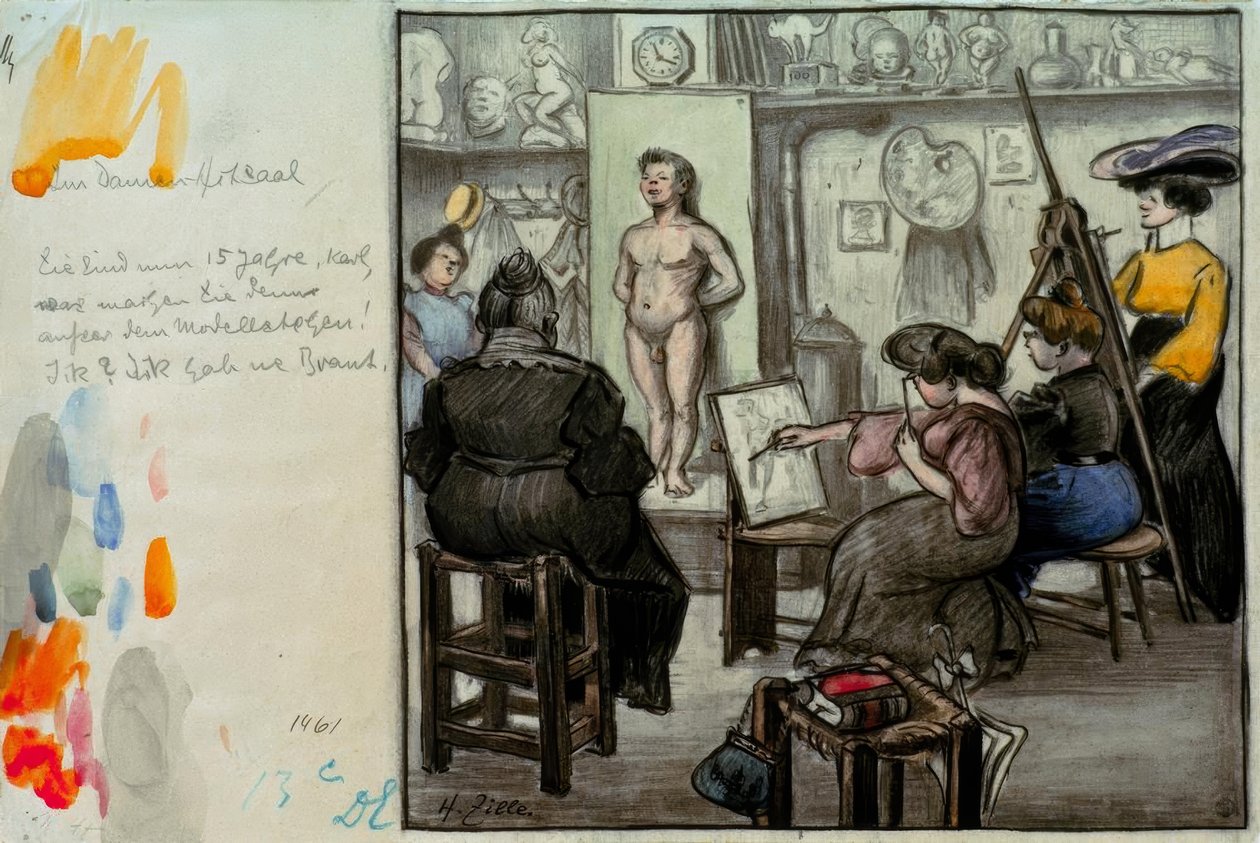 Im Damen-Aktsaal
Sie sind nun 15 Jahre, Karl,
was machen Sie denn
ausser dem Modellstehen!
Ik? Ik hab ne Braut.
1461
13 c
DE
100
H. Zille.